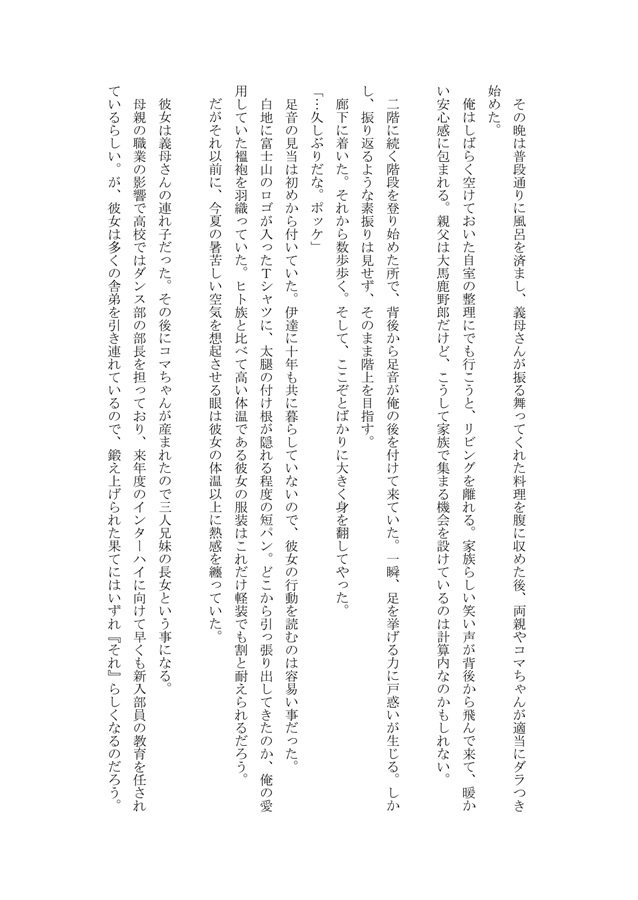 その晩は普段通りに風呂を済まし、義母さんが振る舞ってくれた料理を腹に収めた後、両親やコマちゃんが適当にダラつき
始めた。
　俺はしばらく空けておいた自室の整理にでも行こうと、リビングを離れる。家族らしい笑い声が背後から飛んで来て、暖か
い安心感に包まれる。親父は大馬鹿野郎だけど、こうして家族で集まる機会を設けているのは計算内なのかもしれない。
　二階に続く階段を登り始めた所で、背後から足音が俺の後を付けて来ていた。一瞬、足を挙げる力に戸惑いが生じる。しか
し、振り返るような素振りは見せず、そのまま階上を目指す。
　廊下に着いた。それから数歩歩く。そして、ここぞとばかりに大きく身を翻してやった。
「…久しぶりだな。ポッケ」
　足音の見当は初めから付いていた。伊達に十年も共に暮らしていないので、彼女の行動を読むのは容易い事だった。
　白地に富士山のロゴが入ったＴシャツに、太腿の付け根が隠れる程度の短パン。どこから引っ張り出してきたのか、俺の愛
用していた褞袍を羽織っていた。ヒト族と比べて高い体温である彼女の服装はこれだけ軽装でも割と耐えられるだろう。
　だがそれ以前に、今夏の暑苦しい空気を想起させる眼は彼女の体温以上に熱感を纏っていた。
　彼女は義母さんの連れ子だった。その後にコマちゃんが産まれたので三人兄妹の長女という事になる。
　母親の職業の影響で高校ではダンス部の部長を担っており、来年度のインターハイに向けて早くも新入部員の教育を任され
ているらしい。が、彼女は多くの舎弟を引き連れているので、鍛え上げられた果てにはいずれ『それ』らしくなるのだろう。